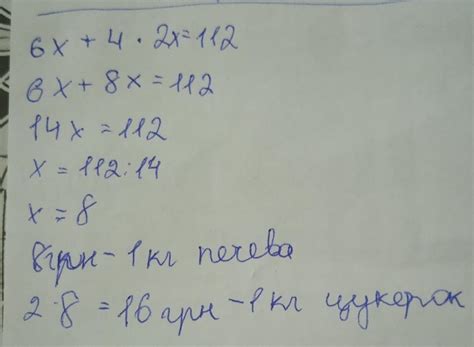 6x + 4 · 2x = 112
6x + 8x = 112
14x = 112
x = 112 : 14
x = 8
8 грн – 1 кг печева
2 · 8 = 16 грн – 1 кг цукерок